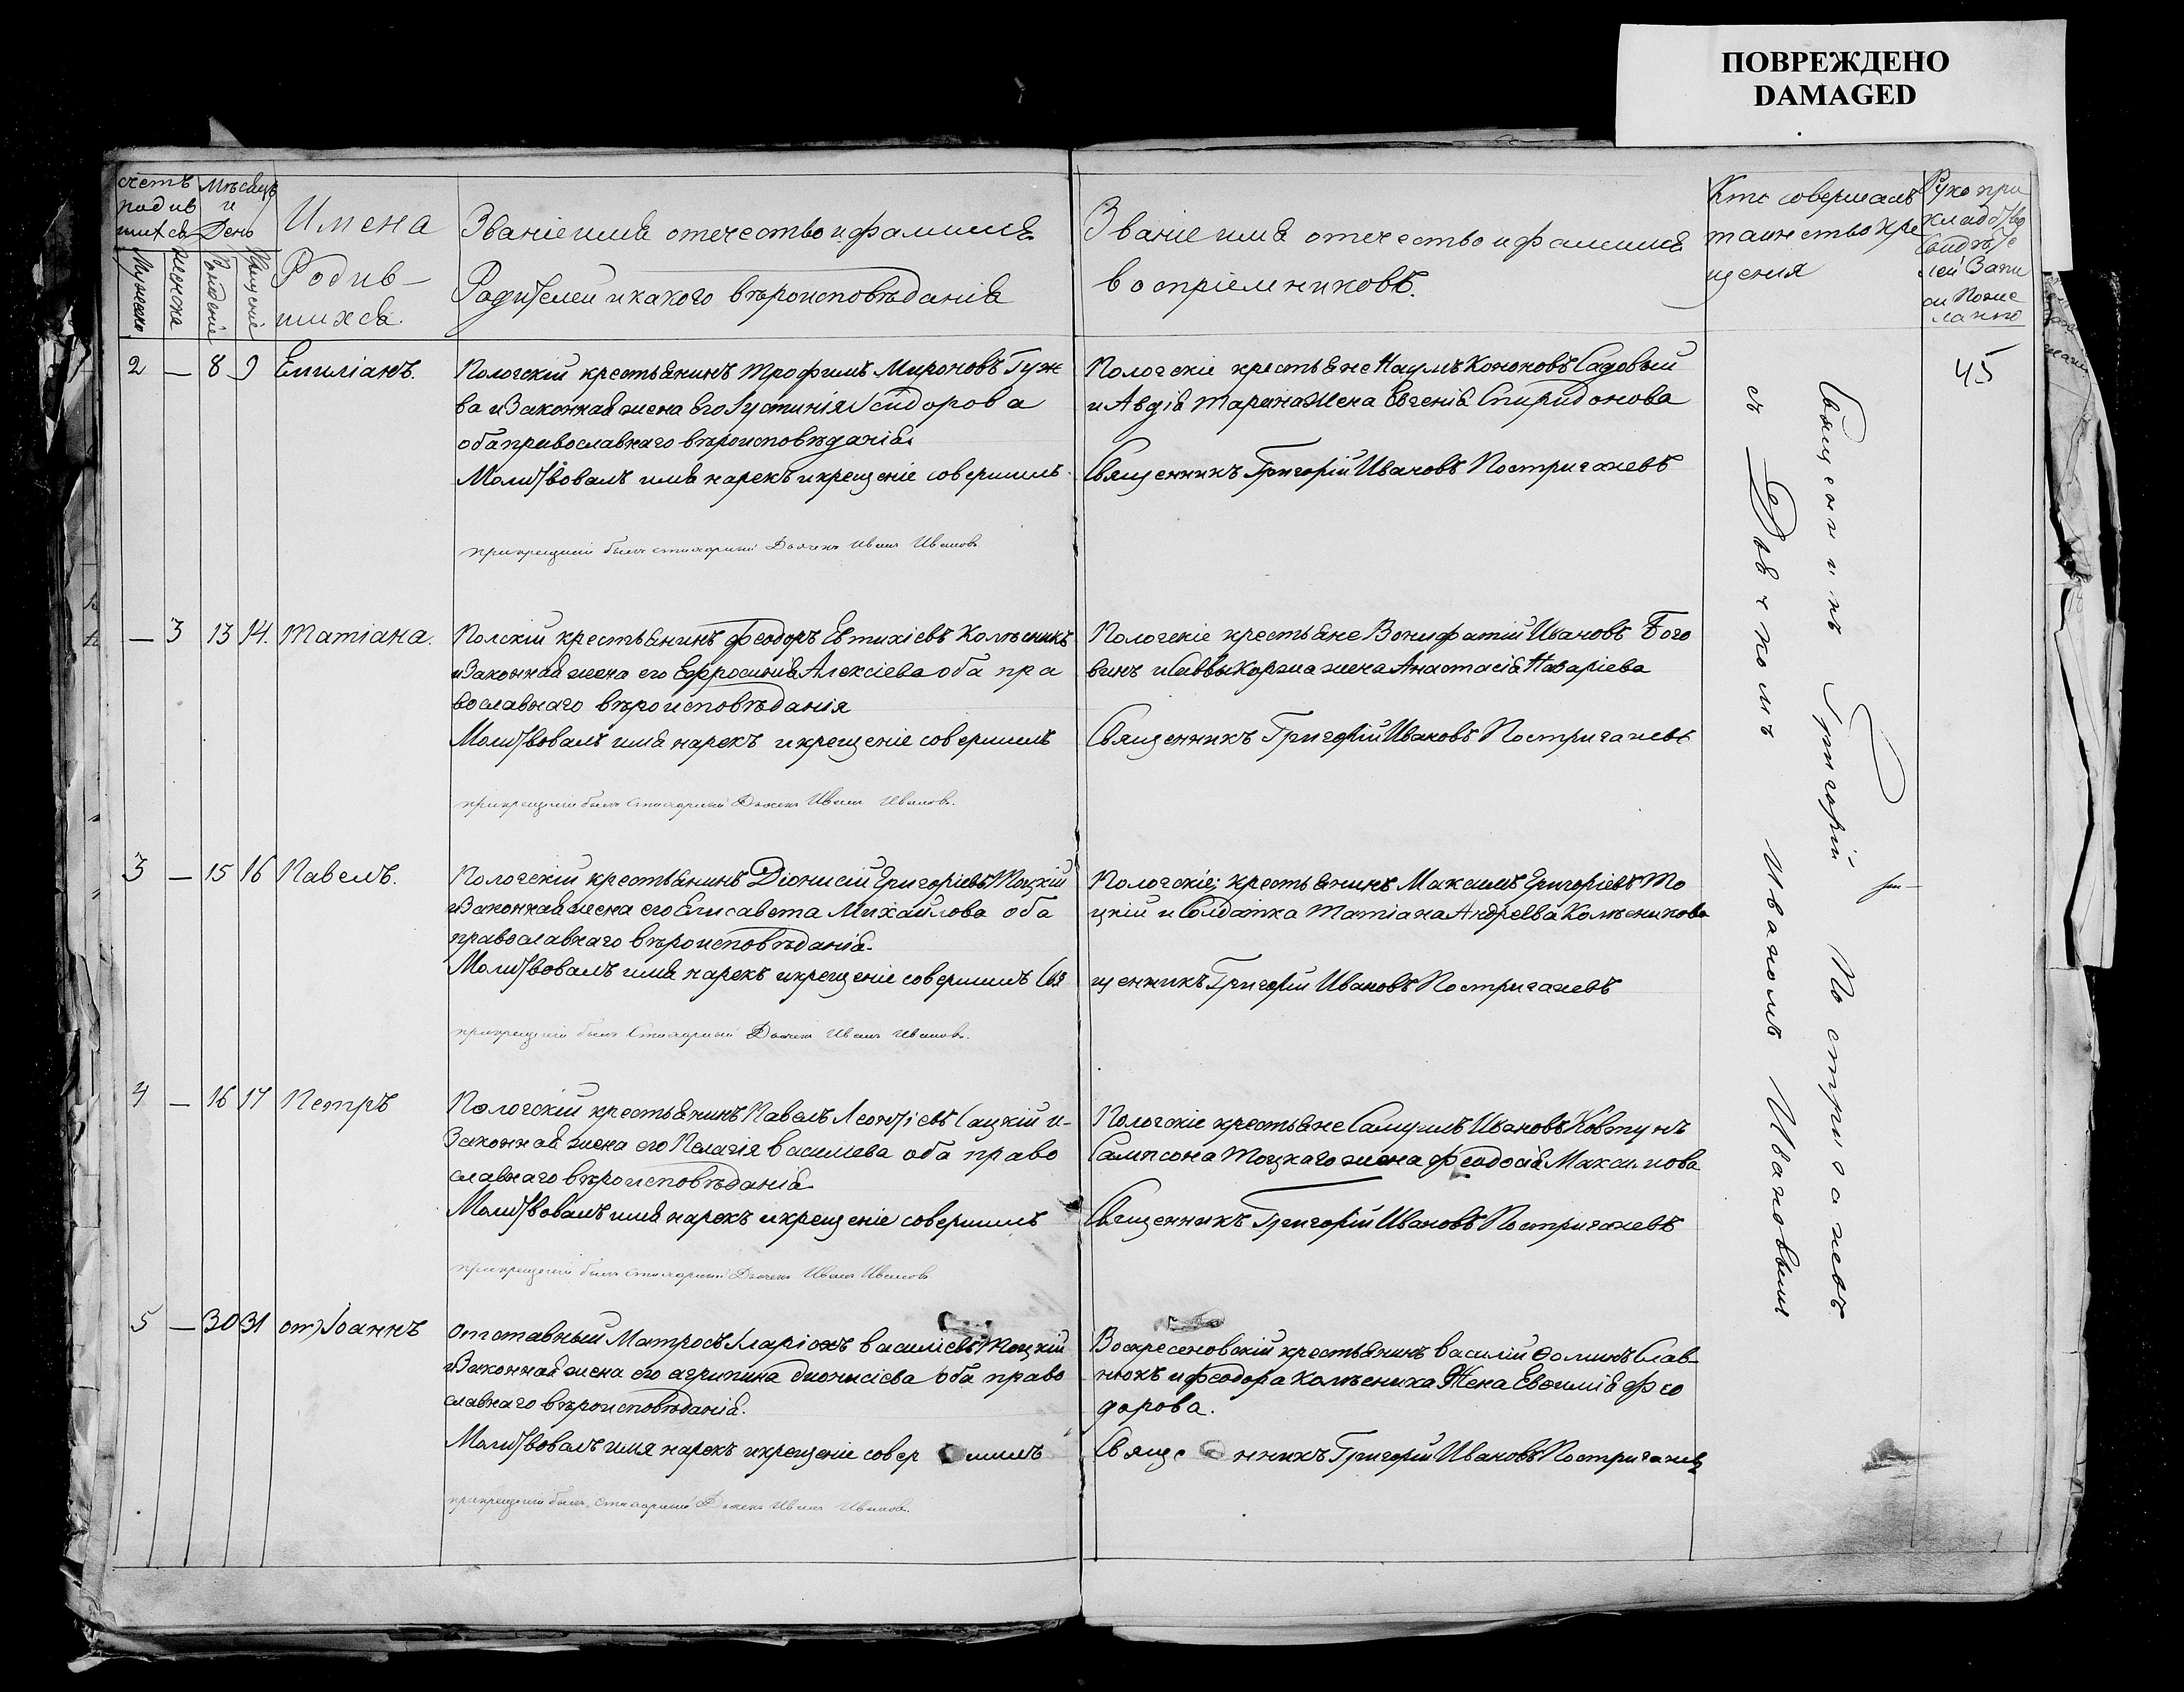 ПОВРЕЖДЕНО
DAMAGED
счетъ родившихся
Мѣсяцъ и День
Имена Родившихся
Званіе имя отечество и фамилія
Родителей и какого вѣроисповѣданія
Званіе имя отечество и фамилія
воспріемниковъ.
Кто совершалъ
таинство кре
щенія
Рукопри
кладство
свидѣте
лей Запи
си Поже
ланію
Мужеска
Женска
Рожденіе
Крещеніе
45
2 — 8 9 Емиліанъ.
Пологскій крестьянинъ Трофимъ Мироновъ Гуж
ва и Законная жена его Іустинія Ісидорова
оба православнаго вѣроисповѣданія
Молитвовалъ имя нарекъ и крещеніе совершилъ
при крещеніи былъ стихарный Дьячекъ Иванъ Ивановъ
Пологскіе крестьяне Наумъ Кононовъ Садовый
и Авдія Тарана жена Евгенія Спиридонова
Священникъ Григорій Ивановъ Постригачевъ
— 3 13 14. Татіана.
Полскій крестьянинъ Феодоръ Евтихіевъ Колѣсникъ
и Законная жена его Ефросинія Алексіева оба пра
вославнаго вѣроисповѣданія
Молитвовалъ имя нарекъ и крещеніе совершилъ
при крещеніи былъ Стихарный Дьячекъ Иванъ Ивановъ.
Пологскіе крестьяне Вонифатій Ивановъ Бого
винъ и Саввы Коржа жена Анастасія Назаріева
Священникъ Григорій Ивановъ Постригачевъ
3 — 15 16 Павелъ.
Пологскій крестьянинъ Діонисій Григоріевъ Тоцкій
и Законная жена его Елисавета Михайлова оба
православнаго вѣроисповѣданія.
Молитвовалъ имя нарекъ и крещеніе совершилъ Свя
при крещеніи былъ Стихарный Дьячекъ Иванъ Ивановъ.
Пологскіе; крестьянинъ Максимъ Григоріевъ То
цкій и Солдатка Татіана Андреева Колѣсникова
щенникъ Григорій Ивановъ Постригачевъ
4 — 16 17 Петръ
Пологскій крестьянинъ Павелъ Леонтіевъ Сацкій и
Законная жена его Пелагія василіева оба право
славнаго вѣроисповѣданія
Молитвовалъ имя нарекъ и крещеніе совершилъ
при крещеніи былъ стихарный Дьячекъ Иванъ Ивановъ
Пологскіе крестьяне Самуилъ Ивановъ Ковтунъ
Сампсона Тоцкаго жена Феодосія Максимова
Священникъ Григорій Ивановъ Постригачевъ
5 — 30 31 Іоаннъ
Отставный Матросъ Іларіонъ василіевъ Тоцкій
и Законная жена его агрипина дионисіева оба право
славнаго вѣроисповѣданія.
Молитвовалъ имя нарекъ и крещеніе совер шилъ
при крещеніи былъ стихарный Дьячекъ Иванъ Ивановъ.
Воскресеновскій крестьянинъ василій Ѳоминъ Слав-
нюкъ и Феодора Колѣсника Жена Евѳимія Фео
дорова.
Свяще нникъ Григорій Ивановъ Постригачевъ
Священникъ Григорій Постригачевъ
съ Дьячкомъ Иваномъ Ивановымъ